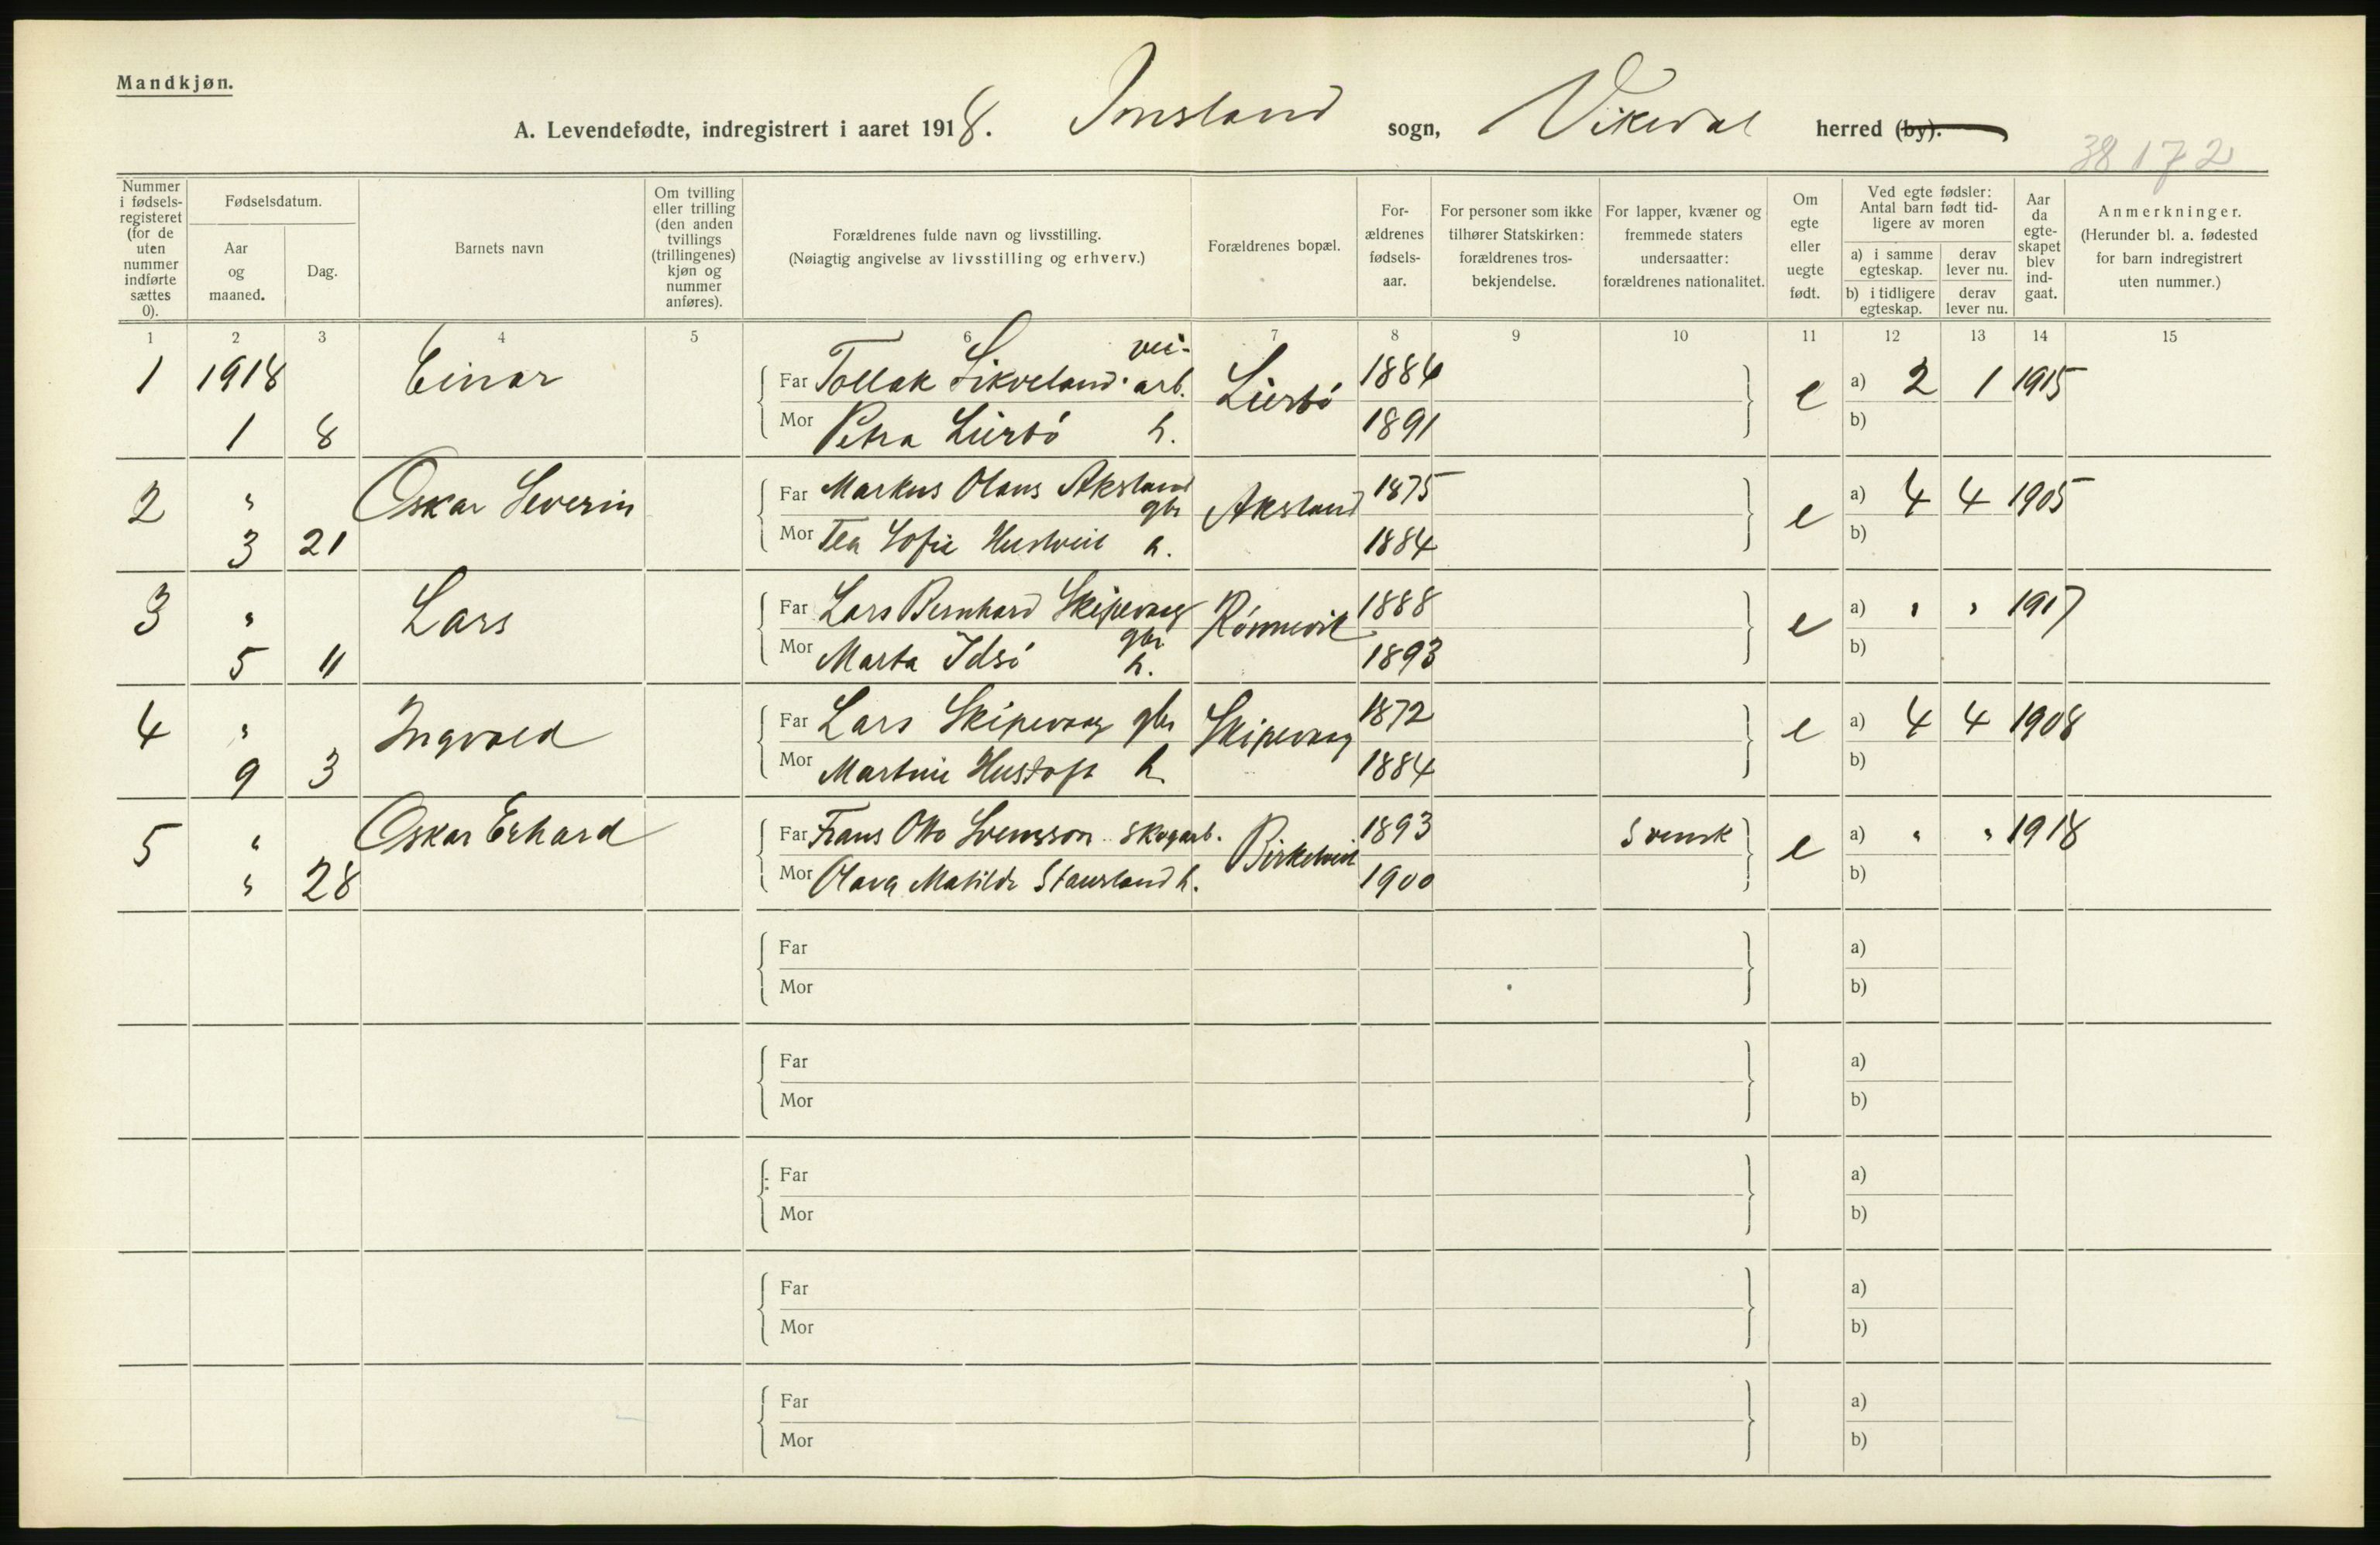 Mandkjøn.
A. Levendefødte, indregistrert i aaret 1918. Imsland sogn, Vikedal herred (by).
38 172
Nummer i fødsels-registeret (for de uten nummer indførte sættes 0).
Fødselsdatum.
Aar og maaned.
Dag.
Barnets navn
Om tvilling eller trilling (den anden tvillings (trillingenes) kjøn og nummer anføres).
Forældrenes fulde navn og livsstilling.
(Nøiagtig angivelse av livsstilling og erhverv.)
Forældrenes bopæl.
For-ældrenes fødsels-aar.
For personer som ikke tilhører Statskirken: forældrenes tros-bekjendelse.
For lapper, kvæner og fremmede staters undersaatter: forældrenes nationalitet.
Om egte eller uegte født.
Ved egte fødsler: Antal barn født tid-ligere av moren
a) i samme egteskap.
derav lever nu.
b) i tidligere egteskap.
derav lever nu.
Aar da egte-skapet blev ind-gaat.
Anmerkninger.
(Herunder bl. a. fødested for barn indregistrert uten nummer.)
1 2 3 4 5 6 7 8 9 10 11 12 13 14 15
1 1918 Einar Far Tollak Likveland vei-arb. Lürbö 1884 e a) 2 1 1915
1 8 Mor Petra Lürbö h. 1891 b)
2 " Oskar Severin Far Markus Olaus Aksland gbr Aksland 1875 e a) 4 4 1905
3 21 Mor Tea Sofie Hustveit h. 1884 b)
3 " Lars Far Lars Bernhard Skipevaag gbr Rönnevik 1888 e a) " " 1917
5 11 Mor Marta Idsö h. 1893 b)
4 " Ingvald Far Lars Skipevaag gbr Skipevaag 1872 e a) 4 4 1908
9 3 Mor Martine Hustoft h. 1884 b)
5 " Oskar Erhard Far Frans Otto Svensson skogarb. Birketveit 1893 Svensk e a) " " 1918
" 28 Mor Olava Matilde Stausland h. 1900 b)
Far a)
Mor b)
Far a)
Mor b)
Far a)
Mor b)
Far a)
Mor b)
Far a)
Mor b)